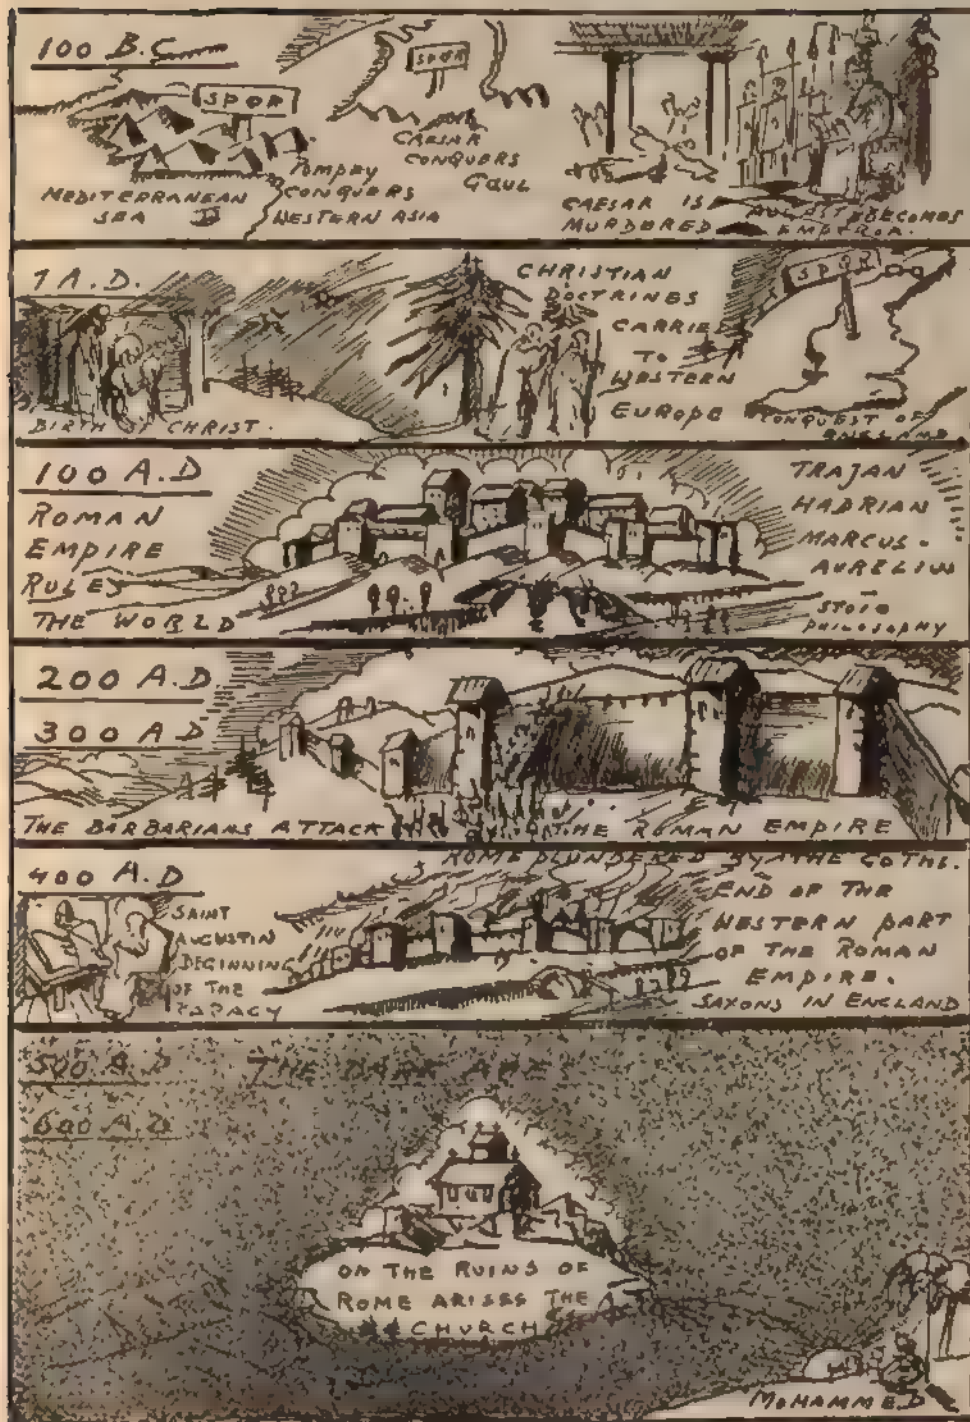 100 B.C
SPQR
SPQR
MEDITERRANEAN
SEA
POMPEY
CONQUERS
WESTERN ASIA
CAESAR
CONQUERS
GAUL
CAESAR IS
MURDERED
BECOMES
EMPEROR.
1 A.D.
BIRTH OF CHRIST.
CHRISTIAN
DOCTRINES
CARRIED
TO
WESTERN
EUROPE
SPQR
CONQUEST OF
ENGLAND
100 A.D
ROMAN
EMPIRE
RULES
THE WORLD
TRAJAN
HADRIAN
MARCUS.
AURELIUS
STOIC
PHILOSOPHY
200 A.D.
300 A D
THE BARBARIANS ATTACK THE ROMAN EMPIRE
400 A.D
SAINT
AUGUSTIN
BEGINNING
OF THE
PAPACY
ROME PLUNDERED BY THE GOTHS.
END OF THE
WESTERN PART
OF THE ROMAN
EMPIRE.
SAXONS IN ENGLAND
500 A.D THE DARK AGE
600 A.D.
ON THE RUINS OF
ROME ARISES THE
CHURCH
MOHAMMED